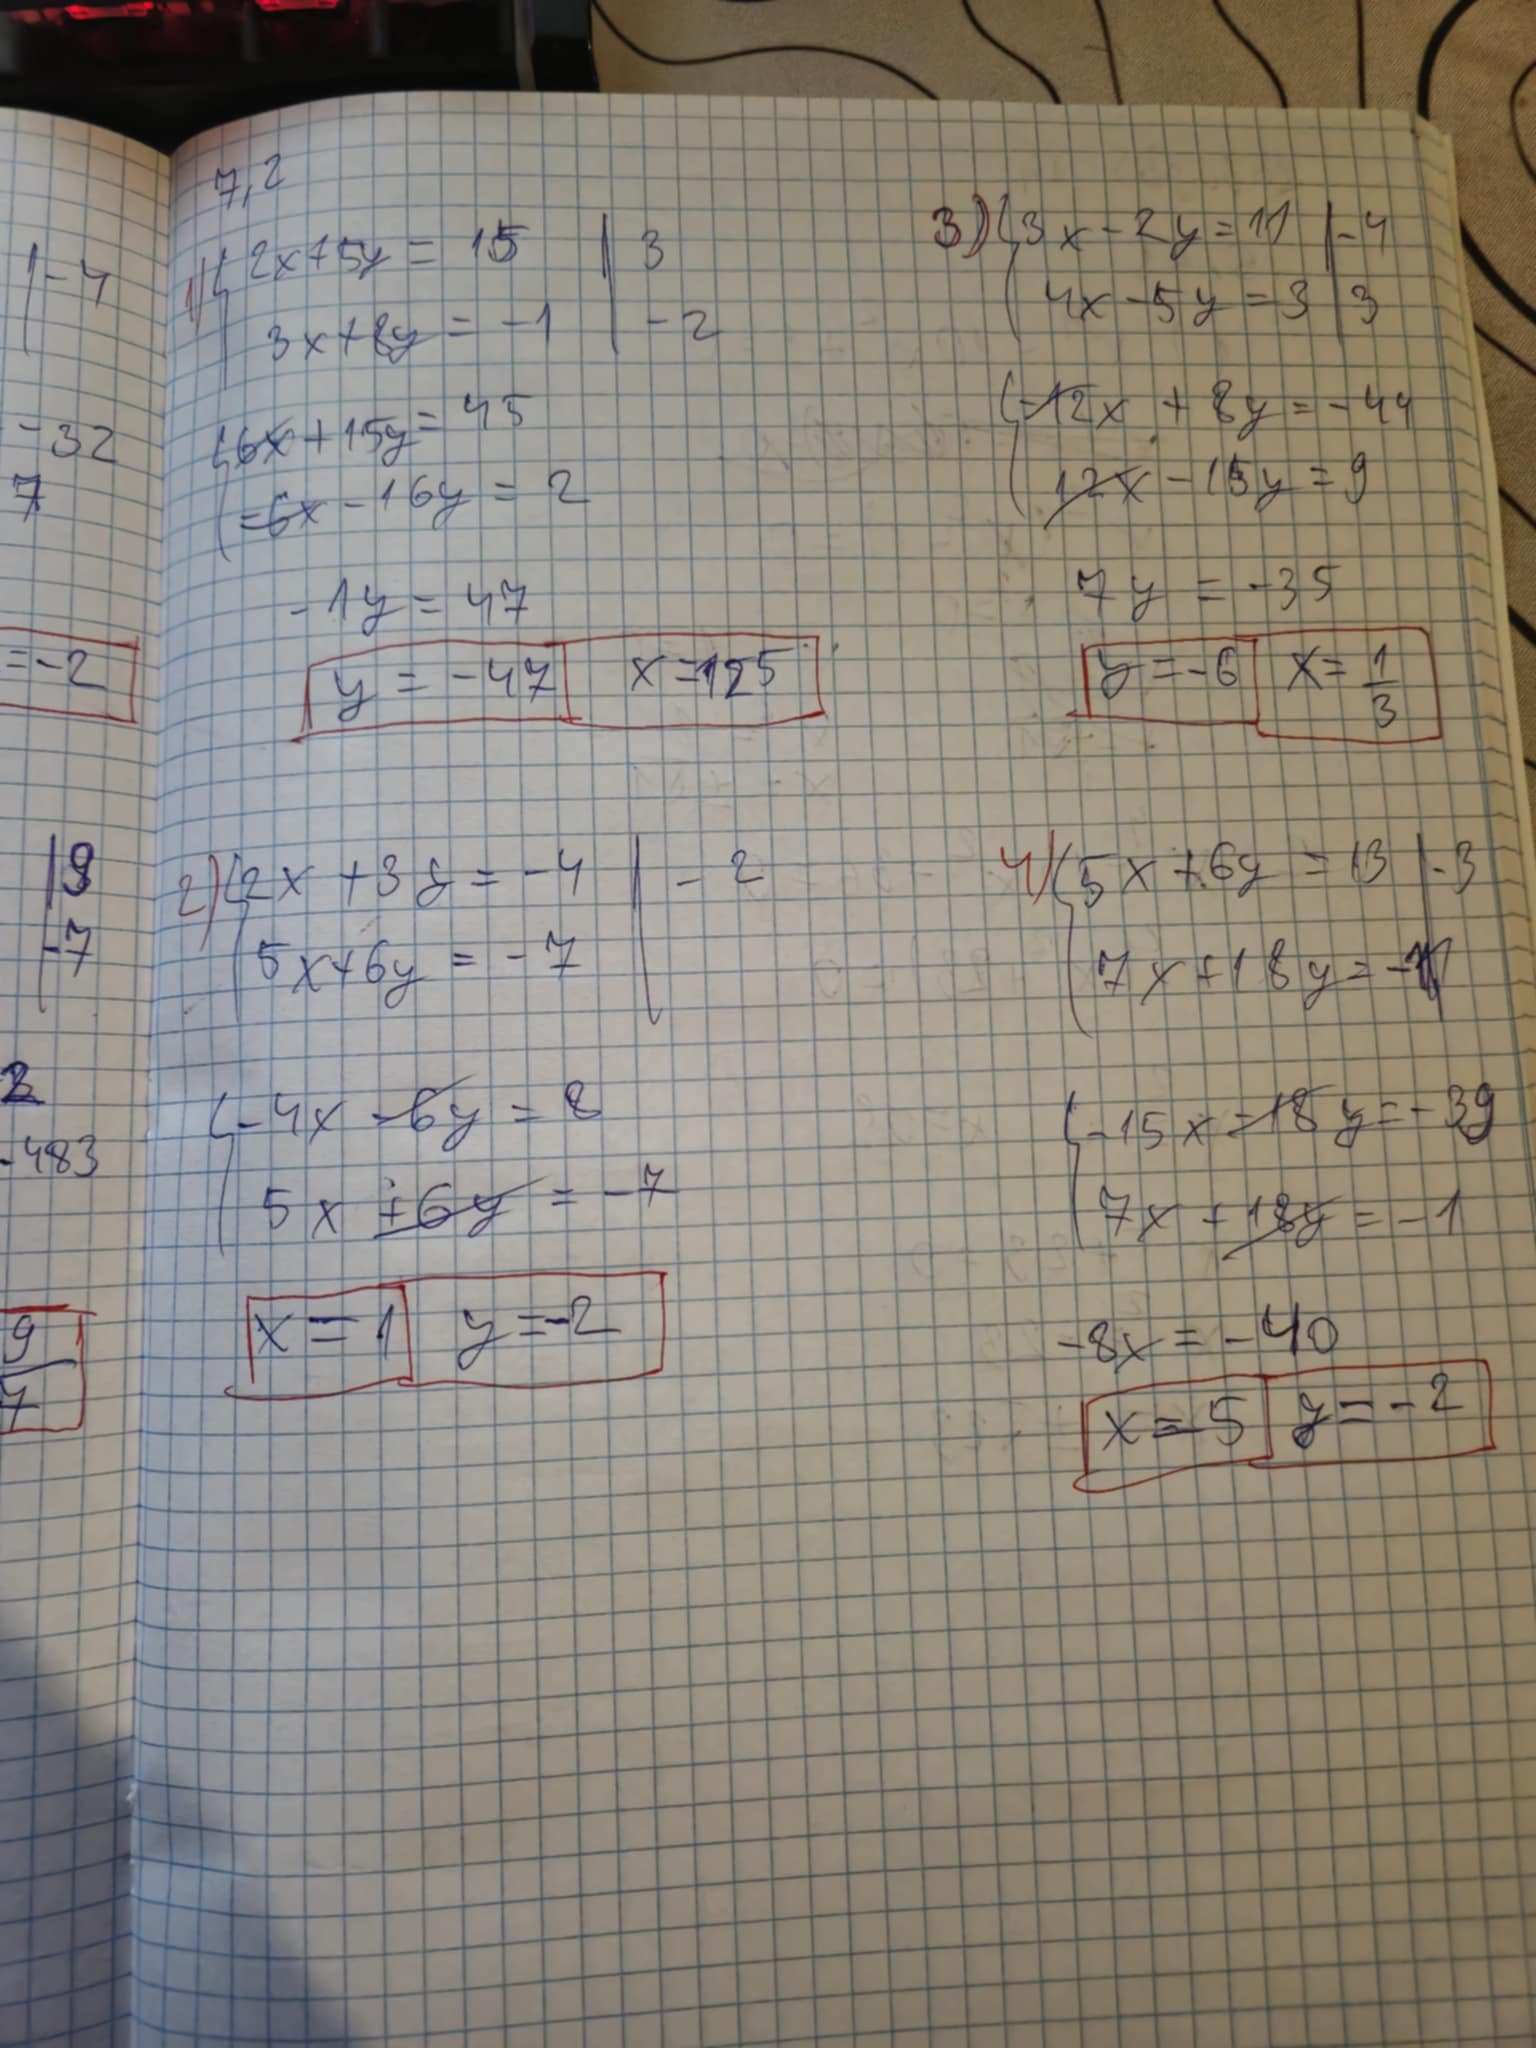 |-4
-32
7
=-2
|9
-7
-483
9
7
7,2
1) { 2x+5y = 15 | 3
3x+8y = -1 | -2
{ 6x+15y = 45
-6x - 16y = 2
-1y = 47
y = -47 x=125
2) { 2x +3y = -4 | -2
5x+6y = -7
{ -4x -6y = 8
5x +6y = -7
x = 1 y=-2
3) { 3x-2y=11 | -4
4x-5y=3 | 3
{ -12x + 8y = -44
12x-15y=9
7y = -35
y=-6 x=1/3
4) { 5x+6y = 13 | -3
7x+18y=-1
{ -15x-18y=-39
7x+18y=-1
-8x = -40
x=5 y=-2